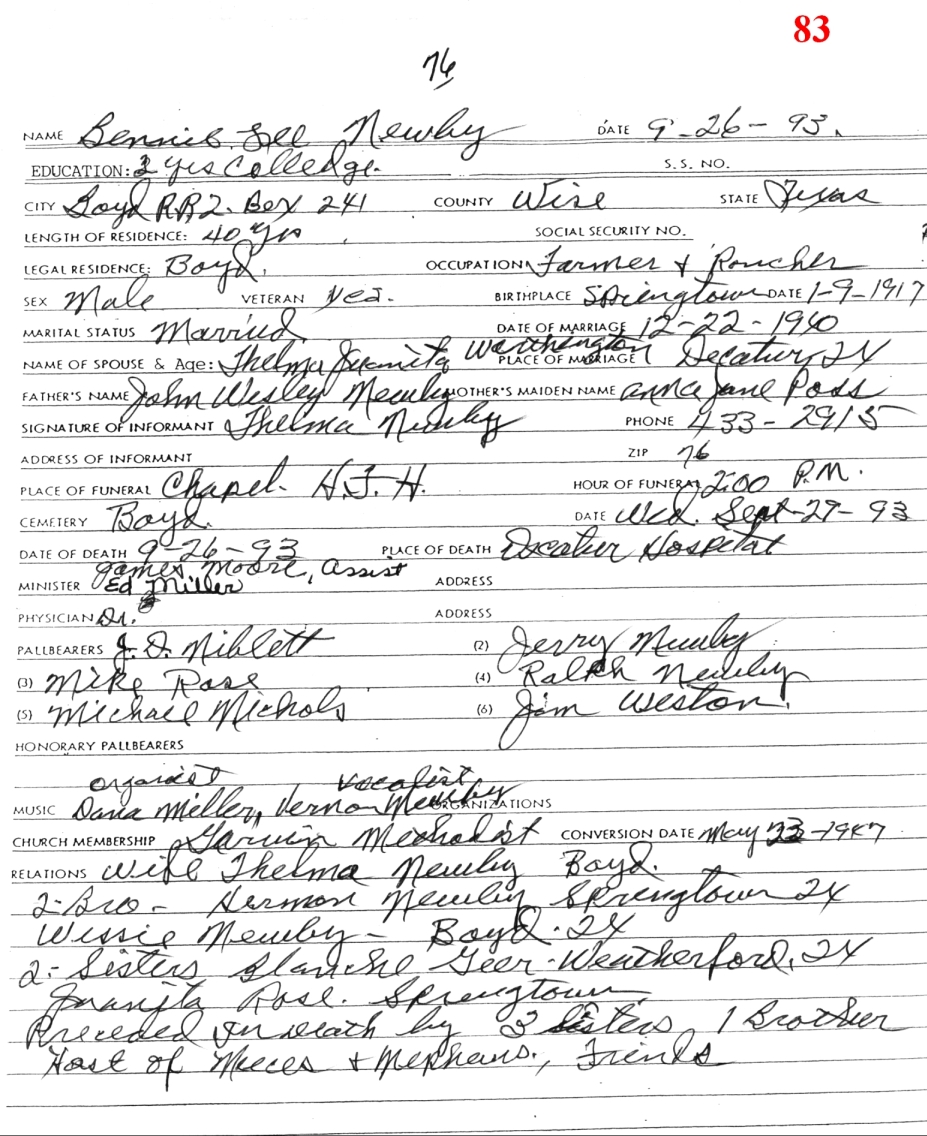 83
76
NAME Bennie Lee Newby DATE 9-26-93.
EDUCATION: 2 yrs Colledge. S.S. NO.
CITY Boyd RR2. Box 241 COUNTY Wise STATE Texas
LENGTH OF RESIDENCE: 40 yrs SOCIAL SECURITY NO.
LEGAL RESIDENCE: Boyd. OCCUPATION Farmer + Rancher
SEX Male VETERAN yes. BIRTHPLACE Springtown DATE 1-9-1917
MARITAL STATUS Married DATE OF MARRIAGE 12-22-1940
NAME OF SPOUSE & Age: Thelma Juanita Worthington PLACE OF MARRIAGE Decatur, TX
FATHER'S NAME John Wesley Newby MOTHER'S MAIDEN NAME Anna Jane Poss
SIGNATURE OF INFORMANT Thelma Newby PHONE 433-2915
ADDRESS OF INFORMANT ZIP 76
PLACE OF FUNERAL Chapel. H.F.H. HOUR OF FUNERAL 2:00 P.M.
CEMETERY Boyd. DATE Wed. Sept-29-93
DATE OF DEATH 9-26-93 PLACE OF DEATH Decatur Hospital
James Moore, Assist
MINISTER Ed Miller ADDRESS
PHYSICIAN Dr. ADDRESS
PALLBEARERS J.D. Niblett (2) Jerry Newby
(3) Mike Rose (4) Ralph Newby
(5) Michael Nichols (6) Jim Weston.
HONORARY PALLBEARERS
organist vocalist
MUSIC Dana Miller, Vernon Newby ORGANIZATIONS
CHURCH MEMBERSHIP Garvin Methodist CONVERSION DATE May 23-1947
RELATIONS Wife Thelma Newby Boyd.
2-Bro- Hermon Newby Springtown TX
Wessie Newby- Boyd. TX
2-Sisters Blanche Geer-Weatherford, TX
Juanita Rose. Springtown
Preceded in death by 3 Sisters, 1 Brother
Host of Nieces + Nephews., Friends